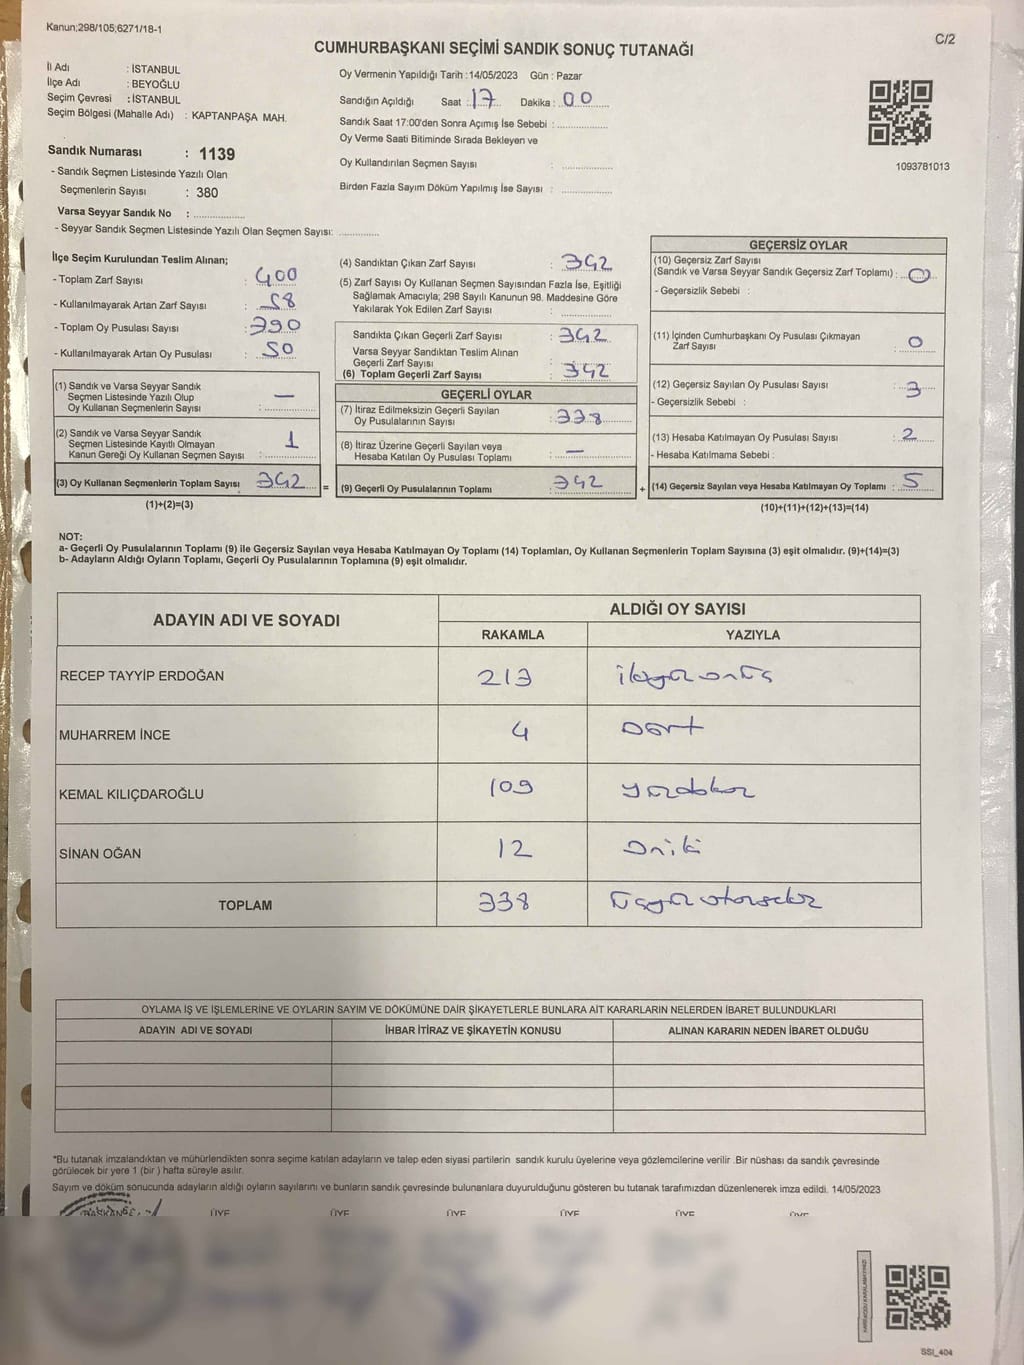 Kanun;298/105;6271/18-1
C/2
CUMHURBAŞKANI SEÇİMİ SANDIK SONUÇ TUTANAĞI
İl Adı : İSTANBUL
İlçe Adı : BEYOĞLU
Seçim Çevresi : İSTANBUL
Seçim Bölgesi (Mahalle Adı) : KAPTANPAŞA MAH.
Sandık Numarası : 1139
- Sandık Seçmen Listesinde Yazılı Olan
Seçmenlerin Sayısı : 380
Varsa Seyyar Sandık No :
- Seyyar Sandık Seçmen Listesinde Yazılı Olan Seçmen Sayısı:
Oy Vermenin Yapıldığı Tarih :14/05/2023 Gün : Pazar
Sandığın Açıldığı Saat : 17 Dakika : 00
Sandık Saat 17:00'den Sonra Açımış İse Sebebi :
Oy Verme Saati Bitiminde Sırada Bekleyen ve
Oy Kullandırılan Seçmen Sayısı :
Birden Fazla Sayım Döküm Yapılmış İse Sayısı :
1093781013
İlçe Seçim Kurulundan Teslim Alınan;
- Toplam Zarf Sayısı : 400
- Kullanılmayarak Artan Zarf Sayısı : 58
- Toplam Oy Pusulası Sayısı : 390
- Kullanılmayarak Artan Oy Pusulası : 50
(1) Sandık ve Varsa Seyyar Sandık
Seçmen Listesinde Yazılı Olup
Oy Kullanan Seçmenlerin Sayısı : —
(2) Sandık ve Varsa Seyyar Sandık
Seçmen Listesinde Kayıtlı Olmayan
Kanun Gereği Oy Kullanan Seçmen Sayısı : 1
(3) Oy Kullanan Seçmenlerin Toplam Sayısı 342 =
(1)+(2)=(3)
(4) Sandıktan Çıkan Zarf Sayısı : 342
(5) Zarf Sayısı Oy Kullanan Seçmen Sayısından Fazla İse, Eşitliği
Sağlamak Amacıyla; 298 Sayılı Kanunun 98. Maddesine Göre
Yakılarak Yok Edilen Zarf Sayısı :
Sandıkta Çıkan Geçerli Zarf Sayısı : 342
Varsa Seyyar Sandıktan Teslim Alınan
Geçerli Zarf Sayısı :
(6) Toplam Geçerli Zarf Sayısı : 342
GEÇERLİ OYLAR
(7) İtiraz Edilmeksizin Geçerli Sayılan
Oy Pusulalarının Sayısı : 338
(8) İtiraz Üzerine Geçerli Sayılan veya
Hesaba Katılan Oy Pusulası Toplamı : —
(9) Geçerli Oy Pusulalarının Toplamı : 342 +
GEÇERSİZ OYLAR
(10) Geçersiz Zarf Sayısı
(Sandık ve Varsa Seyyar Sandık Geçersiz Zarf Toplamı) : 0
- Geçersizlik Sebebi :
(11) İçinden Cumhurbaşkanı Oy Pusulası Çıkmayan
Zarf Sayısı : 0
(12) Geçersiz Sayılan Oy Pusulası Sayısı : 3
- Geçersizlik Sebebi :
(13) Hesaba Katılmayan Oy Pusulası Sayısı : 2
- Hesaba Katılmama Sebebi :
(14) Geçersiz Sayılan veya Hesaba Katılmayan Oy Toplamı : 5
(10)+(11)+(12)+(13)=(14)
NOT:
a- Geçerli Oy Pusulalarının Toplamı (9) ile Geçersiz Sayılan veya Hesaba Katılmayan Oy Toplamı (14) Toplamları, Oy Kullanan Seçmenlerin Toplam Sayısına (3) eşit olmalıdır. (9)+(14)=(3)
b- Adayların Aldığı Oyların Toplamı, Geçerli Oy Pusulalarının Toplamına (9) eşit olmalıdır.
ADAYIN ADI VE SOYADI ALDIĞI OY SAYISI
RAKAMLA YAZIYLA
RECEP TAYYİP ERDOĞAN 213
MUHARREM İNCE 4 Dört
KEMAL KILIÇDAROĞLU 109 yüzdokuz
SİNAN OĞAN 12 Oniki
TOPLAM 338 üçyüzotuzsekiz
OYLAMA İŞ VE İŞLEMLERİNE VE OYLARIN SAYIM VE DÖKÜMÜNE DAİR ŞİKAYETLERLE BUNLARA AİT KARARLARIN NELERDEN İBARET BULUNDUKLARI
ADAYIN ADI VE SOYADI İHBAR İTİRAZ VE ŞİKAYETİN KONUSU ALINAN KARARIN NEDEN İBARET OLDUĞU
*Bu tutanak imzalandıktan ve mühürlendikten sonra seçime katılan adayların ve talep eden siyasi partilerin sandık kurulu üyelerine veya gözlemcilerine verilir .Bir nüshası da sandık çevresinde
görülecek bir yere 1 (bir ) hafta süreyle asılır.
Sayım ve döküm sonucunda adayların aldığı oyların sayılarını ve bunların sandık çevresinde bulunanlara duyurulduğunu gösteren bu tutanak tarafımızdan düzenlenerek imza edildi. 14/05/2023
ÜYE ÜYE ÜYE ÜYE ÜYE ÜYE
SSI_404